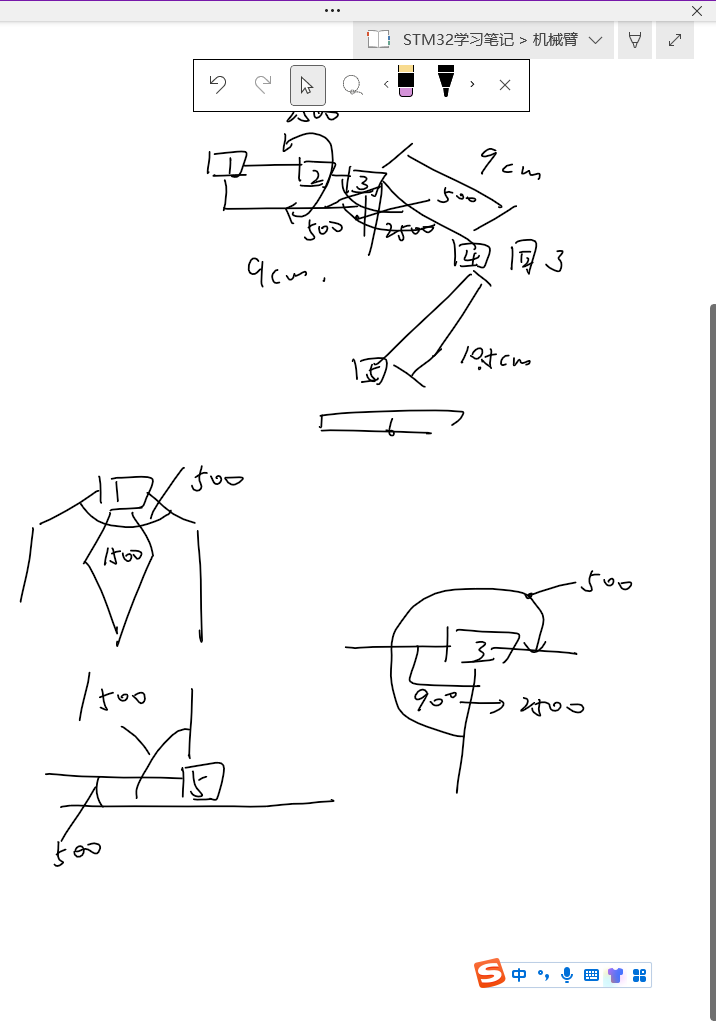 STM32学习笔记 > 机械臂
2500
1
2
3
9cm
500
500
2500
4
同3
9cm.
10.5cm
5
6
1
500
1500
500
3
90°
2500
1500
5
500
中